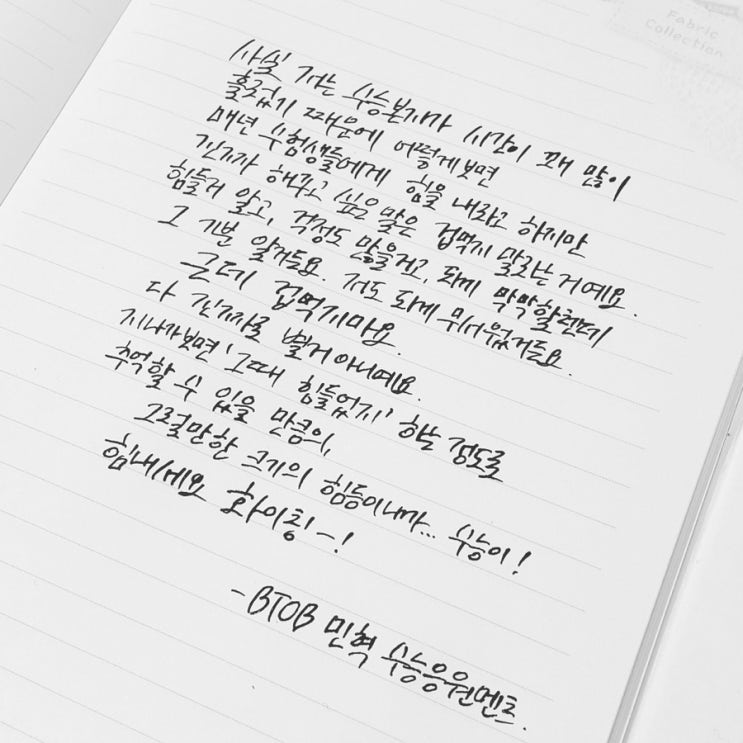 Fabric
Collection
사실 저는 수능본지가 시간이 꽤 많이
흘렀기 때문에 어떻게보면
매년 수험생들에게 힘을 내라고 하지만
진짜 해주고 싶은 말은 겁먹지 말라는 거예요.
힘들거 알고, 걱정도 많을거고, 되게 막막할텐데
그 기분 알거든요. 저도 되게 무서웠거든요.
근데 겁먹지마요.
다 진짜로 별거 아니예요.
지나가보면 '그때 힘들었지' 하는 정도로
추억할 수 있을 만큼의,
그럴만한 크기의 힘듦이니까... 수능이!
힘내세요 화이팅-!
- BTOB 민혁 수능응원멘트.